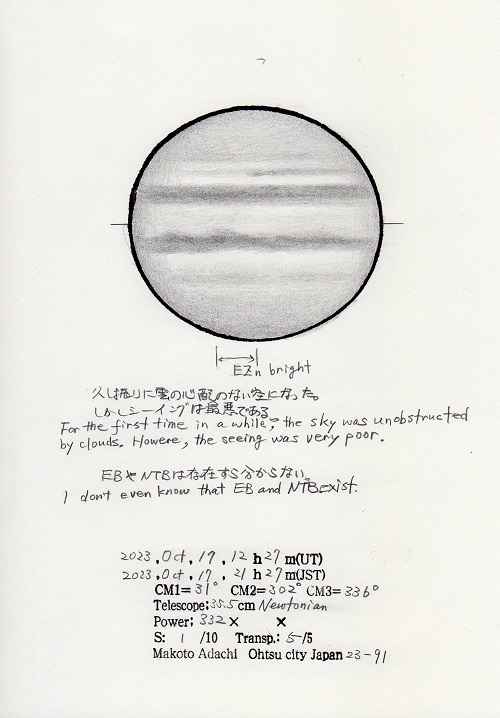 EZn bright
久し振りに雲の心配のない空になった。
しかしシーイングは最悪である。
For the first time in a while, the sky was unobstructed
by clouds. Howere, the seeing was very poor.
EBやNTBは存在すら分からない。
I don't even know that EB and NTB exist.
2023, Oct, 17, 12 h 27 m(UT)
2023, Oct, 17, 21 h 27 m(JST)
CM1= 31° CM2= 302° CM3= 336°
Telescope: 35.5 cm Newtonian
Power: 332 × ×
S: 1 /10 Transp.: 5 /5
Makoto Adachi Ohtsu city Japan 23-91